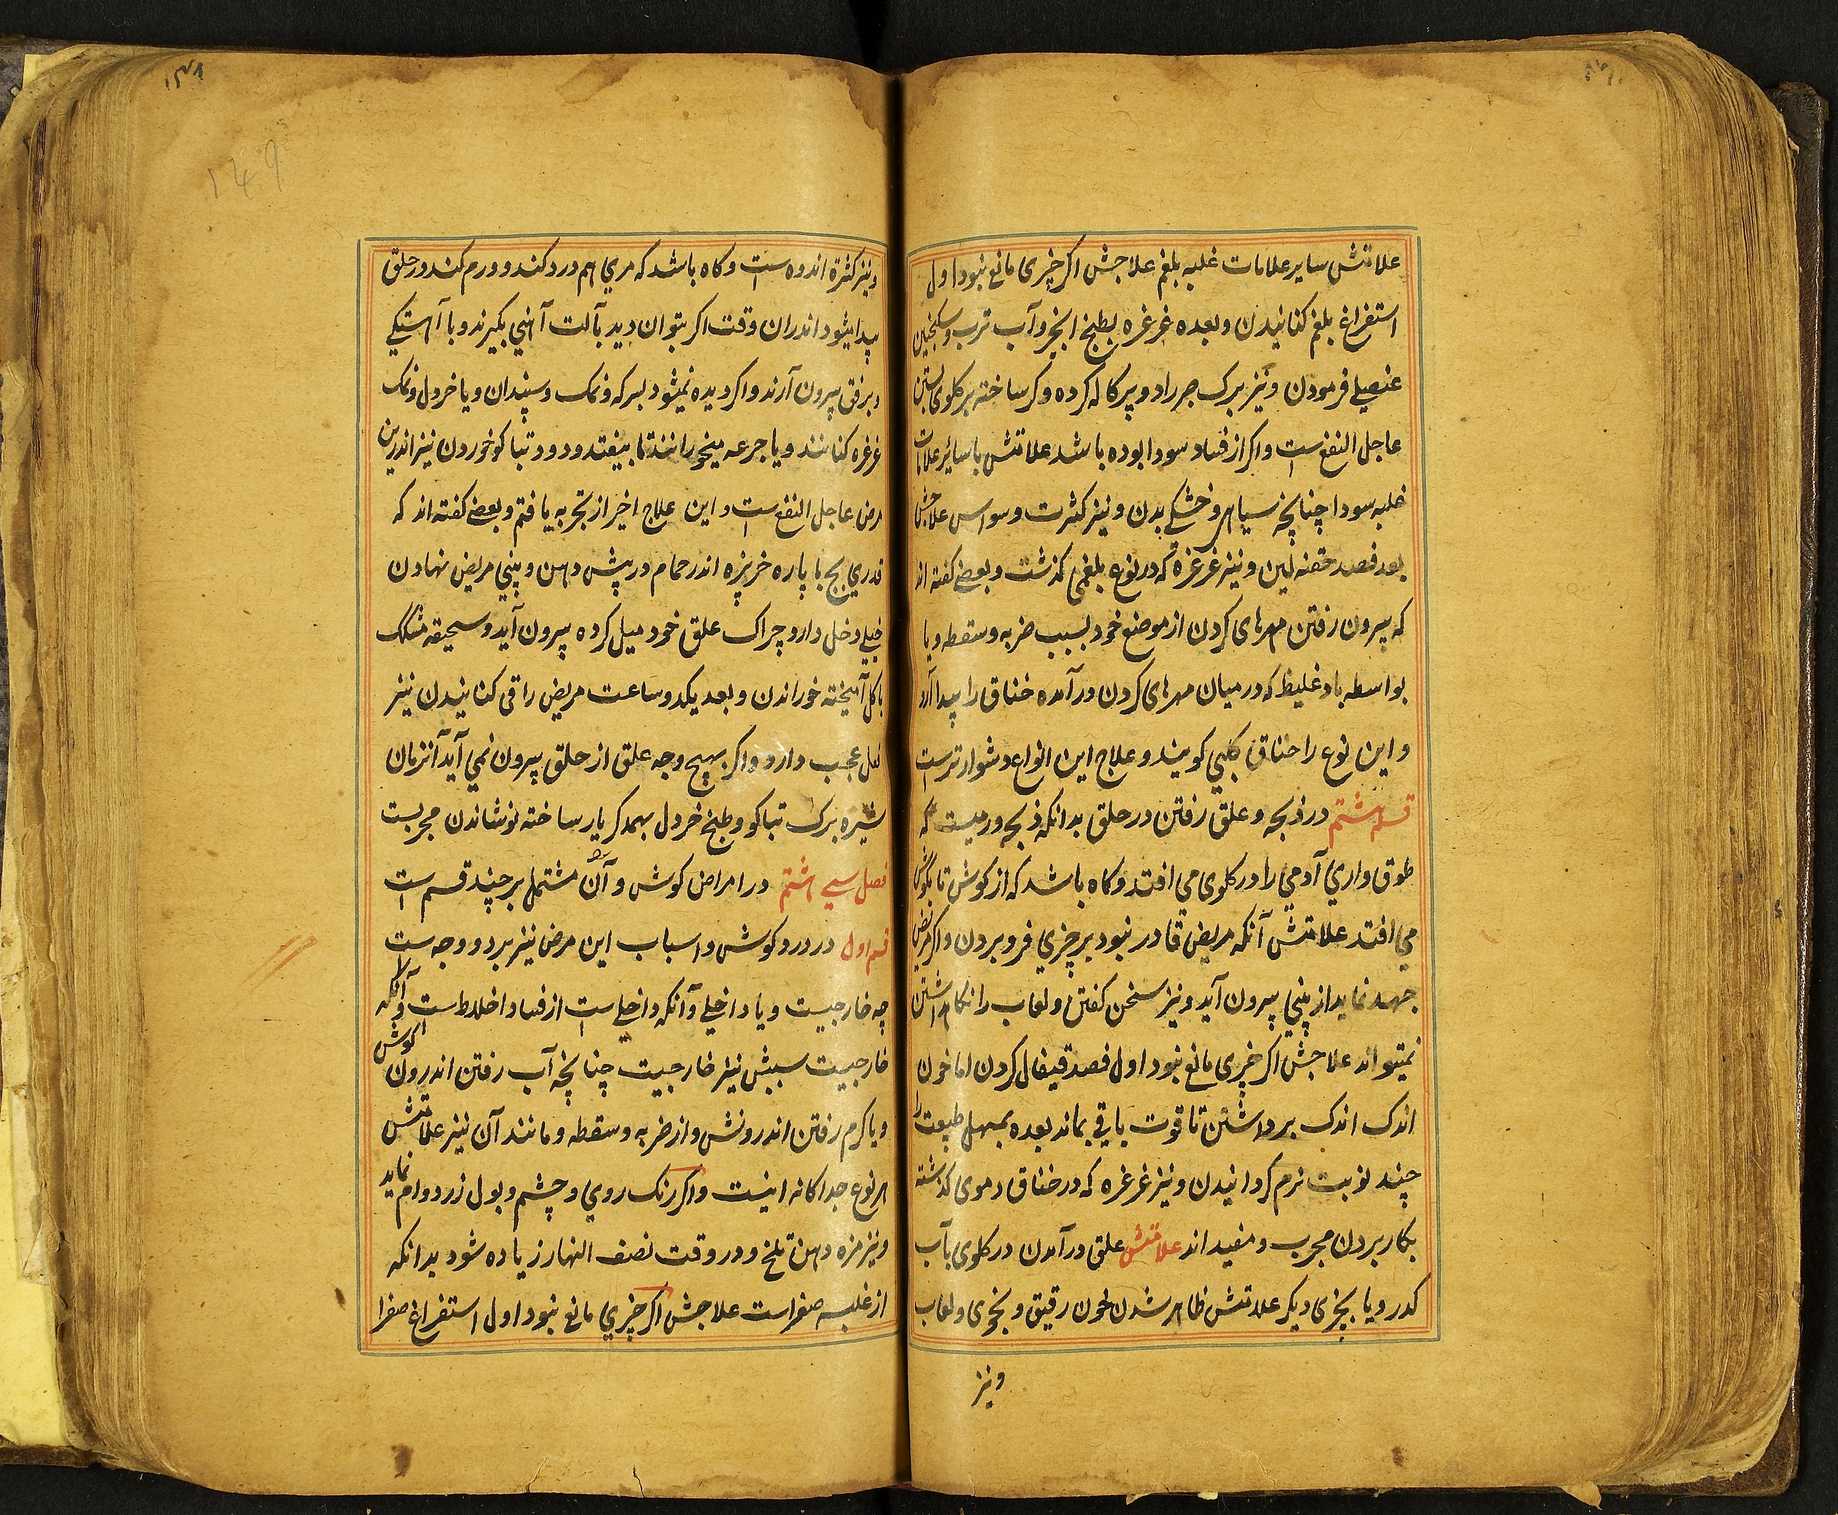 علامتش سایر علامات غلبه بلغم علاجش اکر چیزی مانع نبود اول
استفراغ بلغم کنانیدن و بعده غرغره بطبخ انجیر و آب ترب و سکنجبین
عنصلی فرمودن و نیز برک را دو پرکاله کرده و کرم ساخته بر کلوی بستن
عاجل النفع است و اکر از فساد سودا بوده باشد علامتش با سائر علامات
غلبه سودا چنانچه سیاهی و خشکی بدن و نیز کثرت وسواس علاجش
بعد فصد حقنه لین و نیز غرغره که در نوع بلغمی کذشت و بعضی کفته اند
که بیرون رفتن مهرهای کردن از موضع خود بسبب ضربه و سقطه و یا
بواسطه باد غلیظ که در میان مهرهای کردن درآمده خناق را پیدا آرد
و این نوع را خناق کلبی کویند و علاج این انواع دشوارتر است
قسم هشتم در ذبحه و علق رفتن در حلق بدانکه ذبحه ورمیست که
طوق واری آدمی را در کلوی می افتد و کاه باشد که از کوش تا بکوش
می افتد علامتش آنکه مریض قادر نبود بر چیزی فرو بردن و اکر مریض
جهد نماید از بینی بیرون آید و نیز سخن کفتن و لعاب را نکاه داشتن
نمیتواند علاجش اکر چیزی مانع نبود اول فصد قیفال کردن اما خون
اندک اندک برداشتن تا قوت باقی بماند بعده بمسهل طبیعت را
چند نوبت نرم کردانیدن و نیز غرغره که در خناق دموی کذشته
بکار بردن مجرب و مفید اند علامتش علق درآمدن در کلوی بآب
کدر و یا بچیزی دیکر علامتش ظاهر شدن خون رقیق و لعاب
و نیز
۱۴۹
و نیز کثرة اندوه است و کاه باشد که مری هم درد کند و ورم کند در حلق
پیدا میشود اندران وقت اکر بتوان دید بآلت آهنی بکیرند و با آهستکی
و برفق بیرون آرند و اکر دیده نمیشود بسرکه و نمک و سپندان و یا خردل و نمک
غرغره کنانند و یا جرعه میخورانند تا بیفتد و دود تباکو خوردن نیز اندرین
مرض عاجل النفع است و این علاج اخیر از تجربه یافتم و بعضی کفته اند که
قدری یخ با پاره خرپزه اندر حمام در پیش دهن و بینی مریض نهادن
خیلی دخل دارد چراک علق خود میل کرده بیرون آید و سحیقه مشک
با کل آمیخته خوراندن و بعد یکدو ساعت مریض را قی کنانیدن نیز
عمل عجب دارد و اکر بهیچ وجه علق از حلق بیرون نمی آید آنزمان
شیره برک تباکو و طبخ خردل بهمدکر یار ساخته نوشاندن مجربست
فصل سی هشتم در امراض کوش و آن مشتمل بر چند قسم است
قسم اول در درد کوش و اسباب این مرض نیز بر دو وجه است
چه خارجیست و یا داخلی و آنکه داخلی است از فساد اخلاط است و آنکه
خارجیست سببش نیز خارجیست چنانچه آب رفتن اندرون کوش
و یا کرم رفتن اندرونش و از ضربه و سقطه و مانند آن نیز علامتش
هر نوع جداکانه اینست و اکر رنک روی و چشم و بول زرد وام نماید
و نیز مزه دهن تلخ و در وقت نصف النهار زیاده شود بدانکه
از غلبه صفراست علاجش اکر چیزی مانع نبود اول استفراغ صفرا